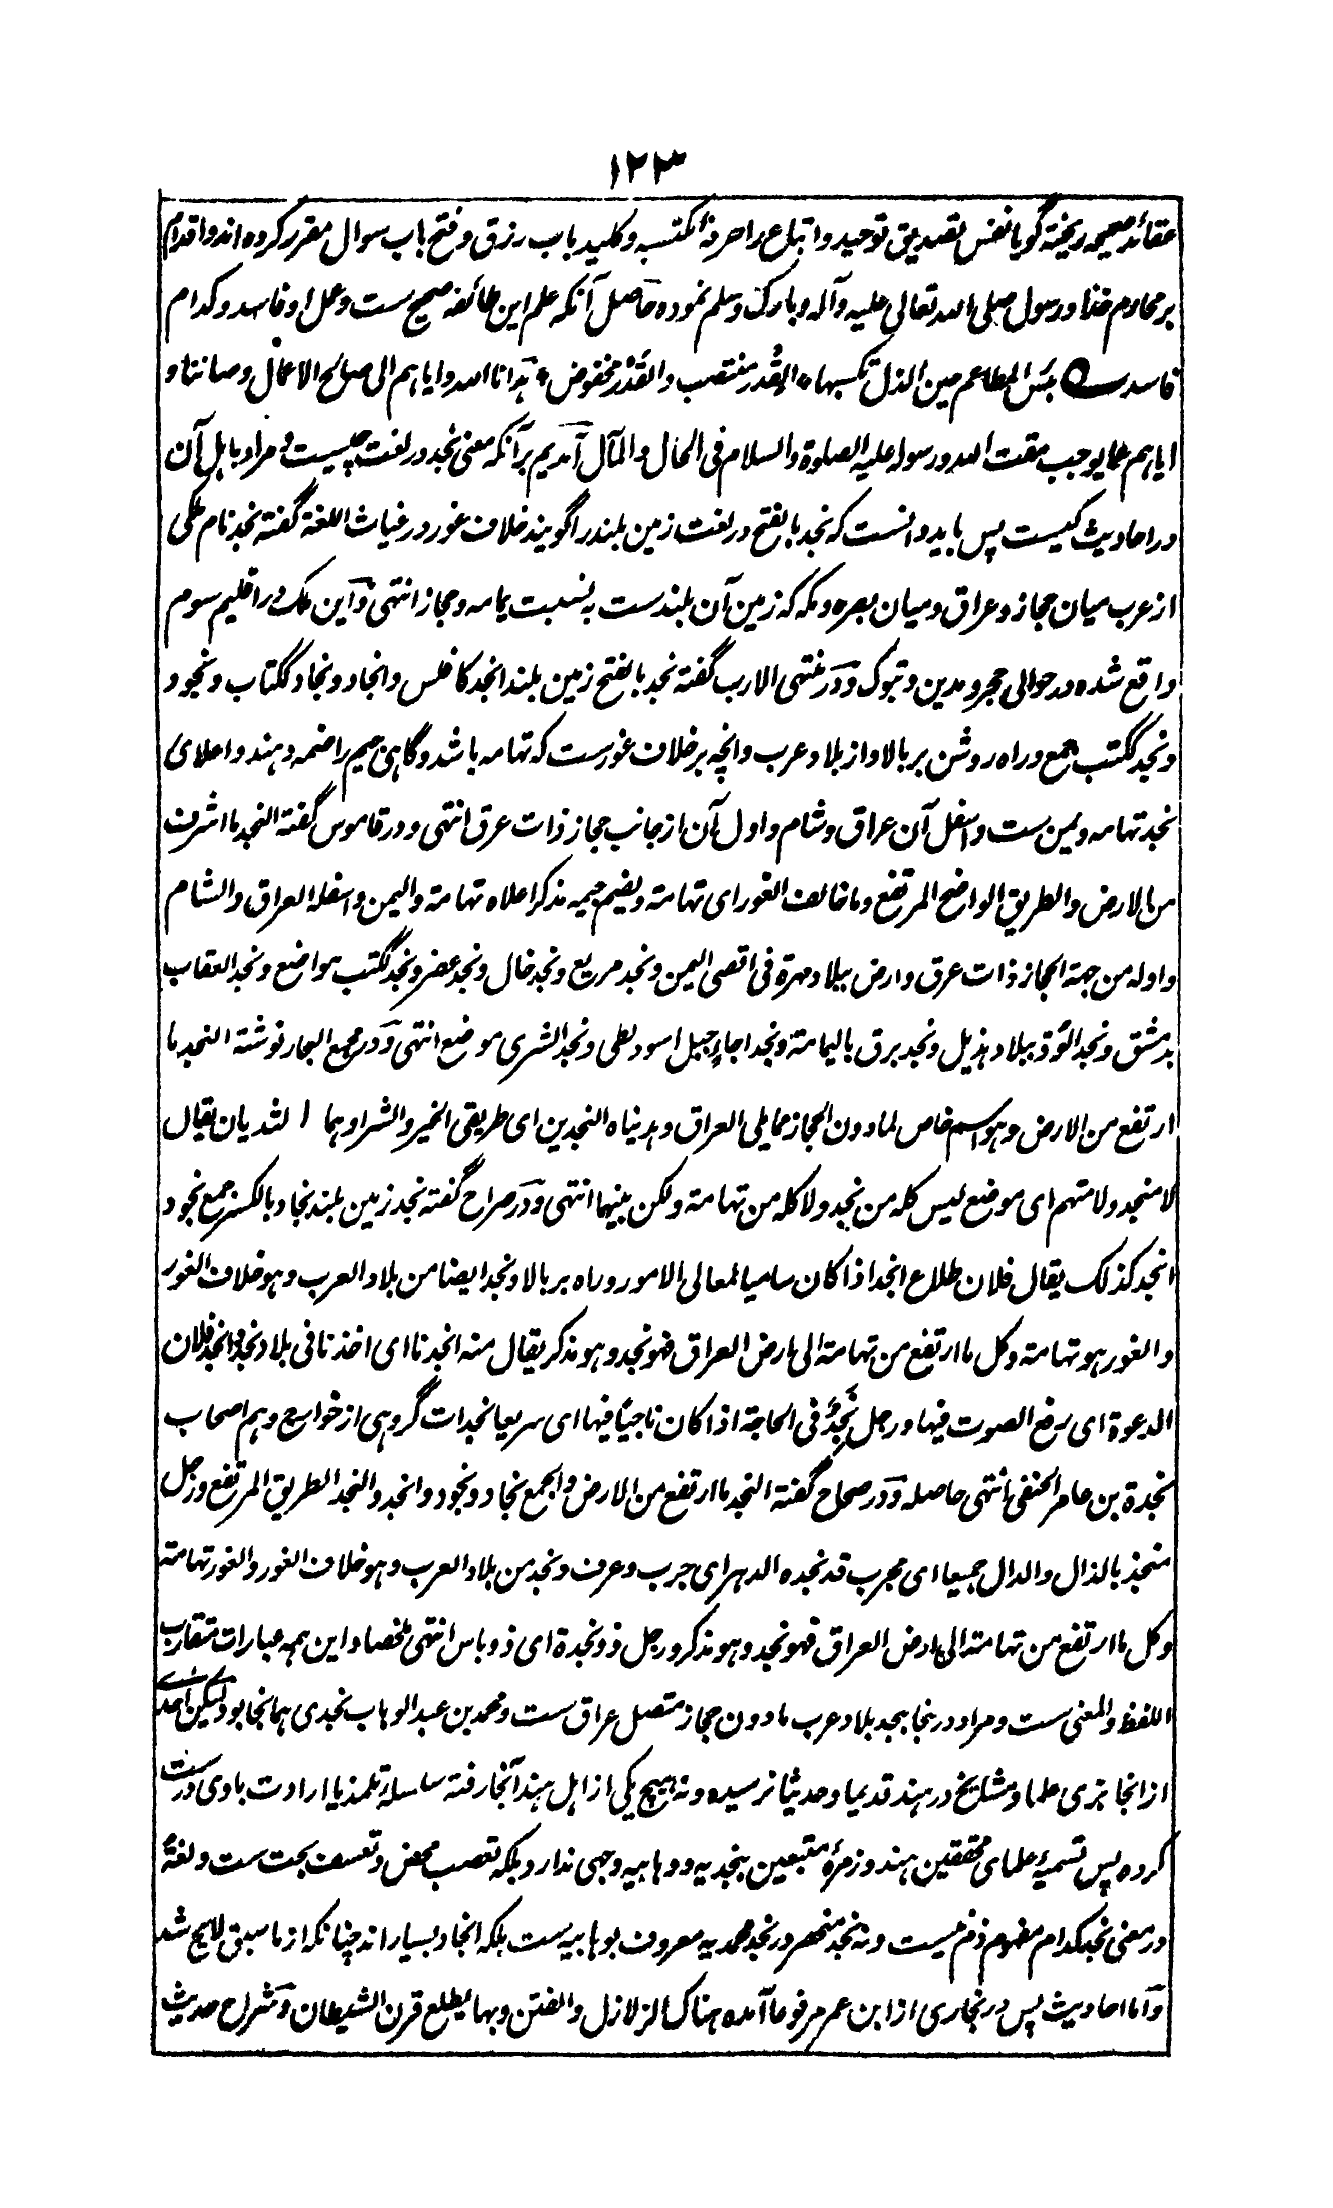 ١٢٣
عقائد صحیحہ ریختہ گویا نفس تصدیق توحید واتباع را حرفۂ مکتسبہ وکلید باب رزق وفتح باب سوال مقرر کردہ اند واقدام
بر محارم خدا ورسول صلی اللہ تعالی علیہ وآلہ وبارک وسلم نمودہ حاصل آنکہ علم این طائفہ صحیح ست وعمل او فاسد وکدام
فاسد ــہ بئس المطاعم حین الذل تکسبہا ٭ القِدر منتصب والقَدْر مخفوض ٭ ہدانا اللہ وایاہم الی صالح الاعمال وصاننا و
ایاہم عما یوجب مقت اللہ ورسولہ علیہ الصلوۃ والسلام فی الحال والمآل آمدیم برآنکہ معنی نجد در لغت چیست و مراد باہل آن
در احادیث کیست پس باید دانست کہ نجد بالفتح در لغت زمین بلند را گویند خلاف غور در غیاث اللغۃ گفتہ نجد نام ملکی
از عرب میان حجاز وعراق ومیان بصرہ ومکہ کہ زمین آن بلندست بہ نسبت یمامہ وحجاز انتہی واین ملک در اقلیم سوم
واقع شدہ در حوالی حجر ومدین وتبوک ودر منتہی الارب گفتہ نجد بالفتح زمین بلند انجد کافلس وانجاد ونجاد ککتاب ونجود
ونجد ککتب جمع وراہ روشن بر بالا واز بلاد عرب وانچہ بر خلاف غورست کہ تہامہ باشد وگاہی جیم را ضمہ دہند واعلای
نجد تہامہ ویمن ست واسفل آن عراق وشام واول آن از جانب حجاز ذات عرق انتہی ودر قاموس گفتہ النجد ما اشرف
من الارض والطریق الواضح المرتفع وما خالف الغور ای تہامۃ ویضم جیمہ مذکر اعلاہ تہامۃ والیمن واسفلہ العراق والشام
واولہ من جہۃ الحجاز ذات عرق وارض ببلاد مہرۃ فی اقصی الیمن ونجد مریع ونجد خال ونجد عفر ونجد کبکب مواضع ونجد العقاب
بدمشق ونجد الوُد ببلاد ہذیل ونجد برق بالیمامۃ ونجد اجاء جبل اسود لطی ونجد الشری موضع انتہی ودر مجمع البحار نوشتہ النجد ما
ارتفع من الارض وہو اسم خاص لما دون الحجاز مما یلی العراق وہدیناہ النجدین ای طریقی الخیر والشر اوہما الثدیان یقال
لا منجد ولا متہم ای موضع لیس کلہ من نجد ولا کلہ من تہامۃ ولکن بینہما انتہی ودر صراح گفتہ نجد زمین بلند نجاد بالکسر جمع نجود
انجد کذلک یقال فلان طلاع انجد اذا کان سامیا لمعالی الامور وراہ بر بالا ونجد ایضا من بلاد العرب وہو خلاف الغور
والغور ہو تہامۃ وکل ما ارتفع من تہامۃ الی ارض العراق فہو نجد وہو مذکر یقال منہ انجدنا ای اخذنا فی بلاد نجد وانجد فلان
الدعوۃ ای رفع الصوت فیہا ورجل نَجُدٌ فی الحاجۃ اذا کان ناجیًا فیہا ای سریعا نجدات گروہی از خوارج وہم اصحاب
نجدۃ بن عامر الحنفی انتہی حاصلہ ودر صحاح گفتہ النجد ما ارتفع من الارض والجمع نجاد ونجود وانجد والنجد الطریق المرتفع ورجل
منجذ بالذال والدال جمیعا ای مجرب قد نجدہ الدہر ای جرب وعرف ونجد من بلاد العرب وہو خلاف الغور والغور تہامۃ
وکل ما ارتفع من تہامۃ الی ارض العراق فہو نجد وہو مذکر ورجل ذو نجدۃ ای ذو باس انتہی ملخصا واین ہمہ عبارات متقارب
اللفظ والمعنی ست ومراد درینجا بنجد بلاد عرب مادون حجاز متصل عراق ست ومحمد بن عبد الوہاب نجدی ہمانجا بود لیکن احدی
از انجا بزی علما ومشایخ در ہند قدیما وحدیثا نرسیدہ ونہ ہیچ یکی از اہل ہند آنجا رفتہ سلسلۂ تلمذ یا ارادت باوی درست
کردہ پس تسمیۂ علمای محققین ہند وزمرۂ متبعین بنجدیہ ووہابیہ وجہی ندارد بلکہ تعصب محض وتعسف بحت ست ولغۃً
در معنی نجد کدام مفہوم ذم نیست ونہ نجد منحصر در نجد محمدیہ معروف بوہابیہ ست بلکہ انجاد بسیار اند چنانکہ از ما سبق لایح شد
واما احادیث پس در بخاری از ابن عمر مرفوعا آمدہ ہناک الزلازل والفتن وبہا یطلع قرن الشیطان وشراح حدیث